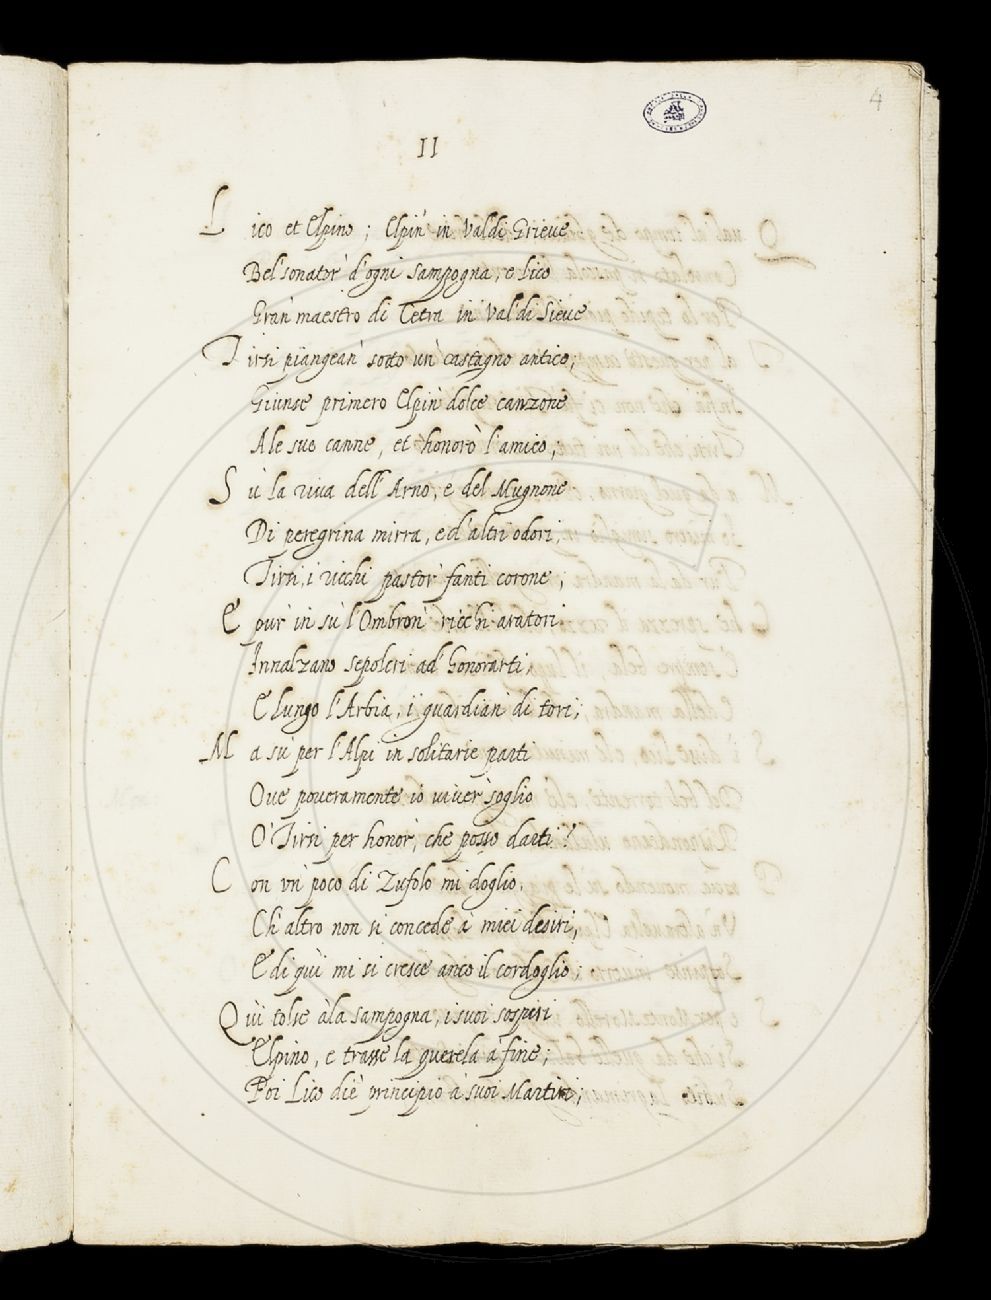 4
II
Lico et Elpino; Elpin' in Val di Grieve
Bel sonator' d'ogni sampogna, e Lico
Gran' maestro di Cetra in Val di Sieve
Tirsi piangean' sotto un' castagno antico,
Giunse primero Elpin' dolce canzone
A le sue canne, et honorò l'amico;
Sù la riva dell'Arno, e del Mugnone
Di peregrina mirra, e d'altri odori,
Tirsi, i ricchi pastor' fanti corone;
E pur' in sù l'Ombron' ricchi aratori
Innalzano sepolcri ad' honorarti,
E lungo l'Arbia, i guardian' di tori;
Ma su per l'Alpi in solitarie parti
Oue poueramente io viuer' soglio
O' Tirsi per honor', che posso darti?
Con vn' poco di Zufolo mi doglio,
Ch'altro non si concede à miei desiri,
E di qui mi si cresce anco il cordoglio;
Quì tolse à la sampogna, i suoi sospiri
Elpino, e trasse la querela à fine;
Poi Lico diè principio à suoi Martiri;